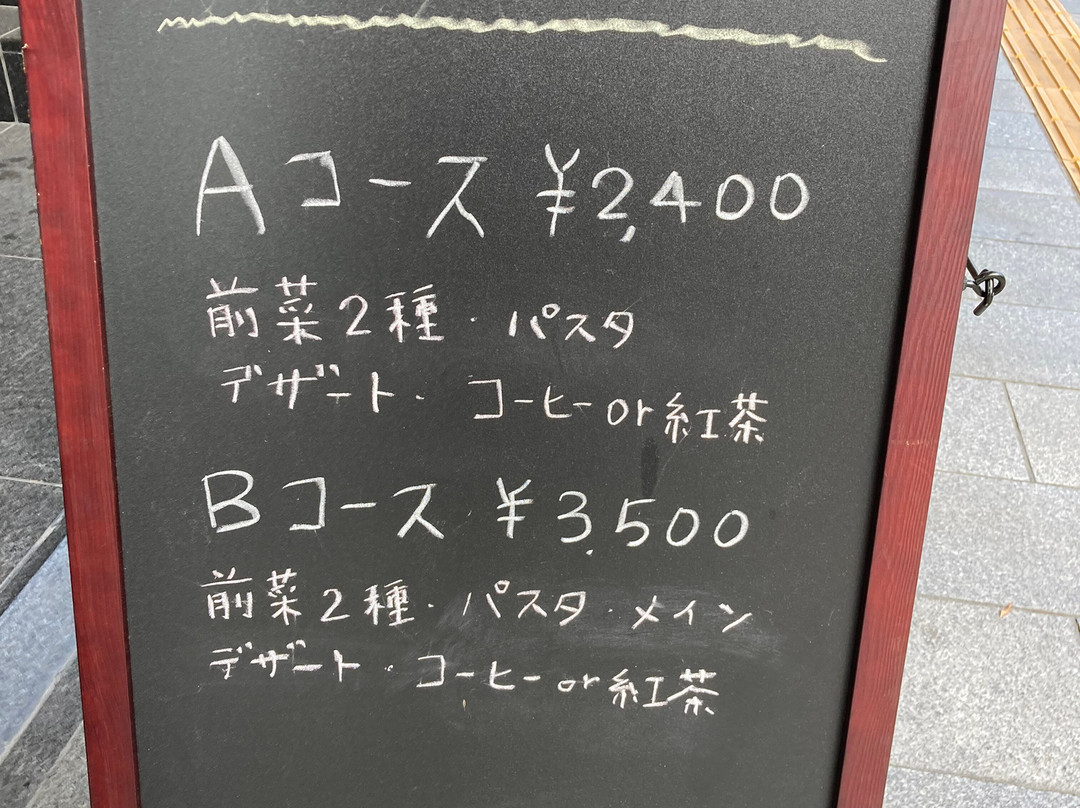 Aコース ¥2,400
前菜2種・パスタ
デザート・コーヒーor紅茶
Bコース ¥3,500
前菜2種・パスタ・メイン
デザート・コーヒーor紅茶